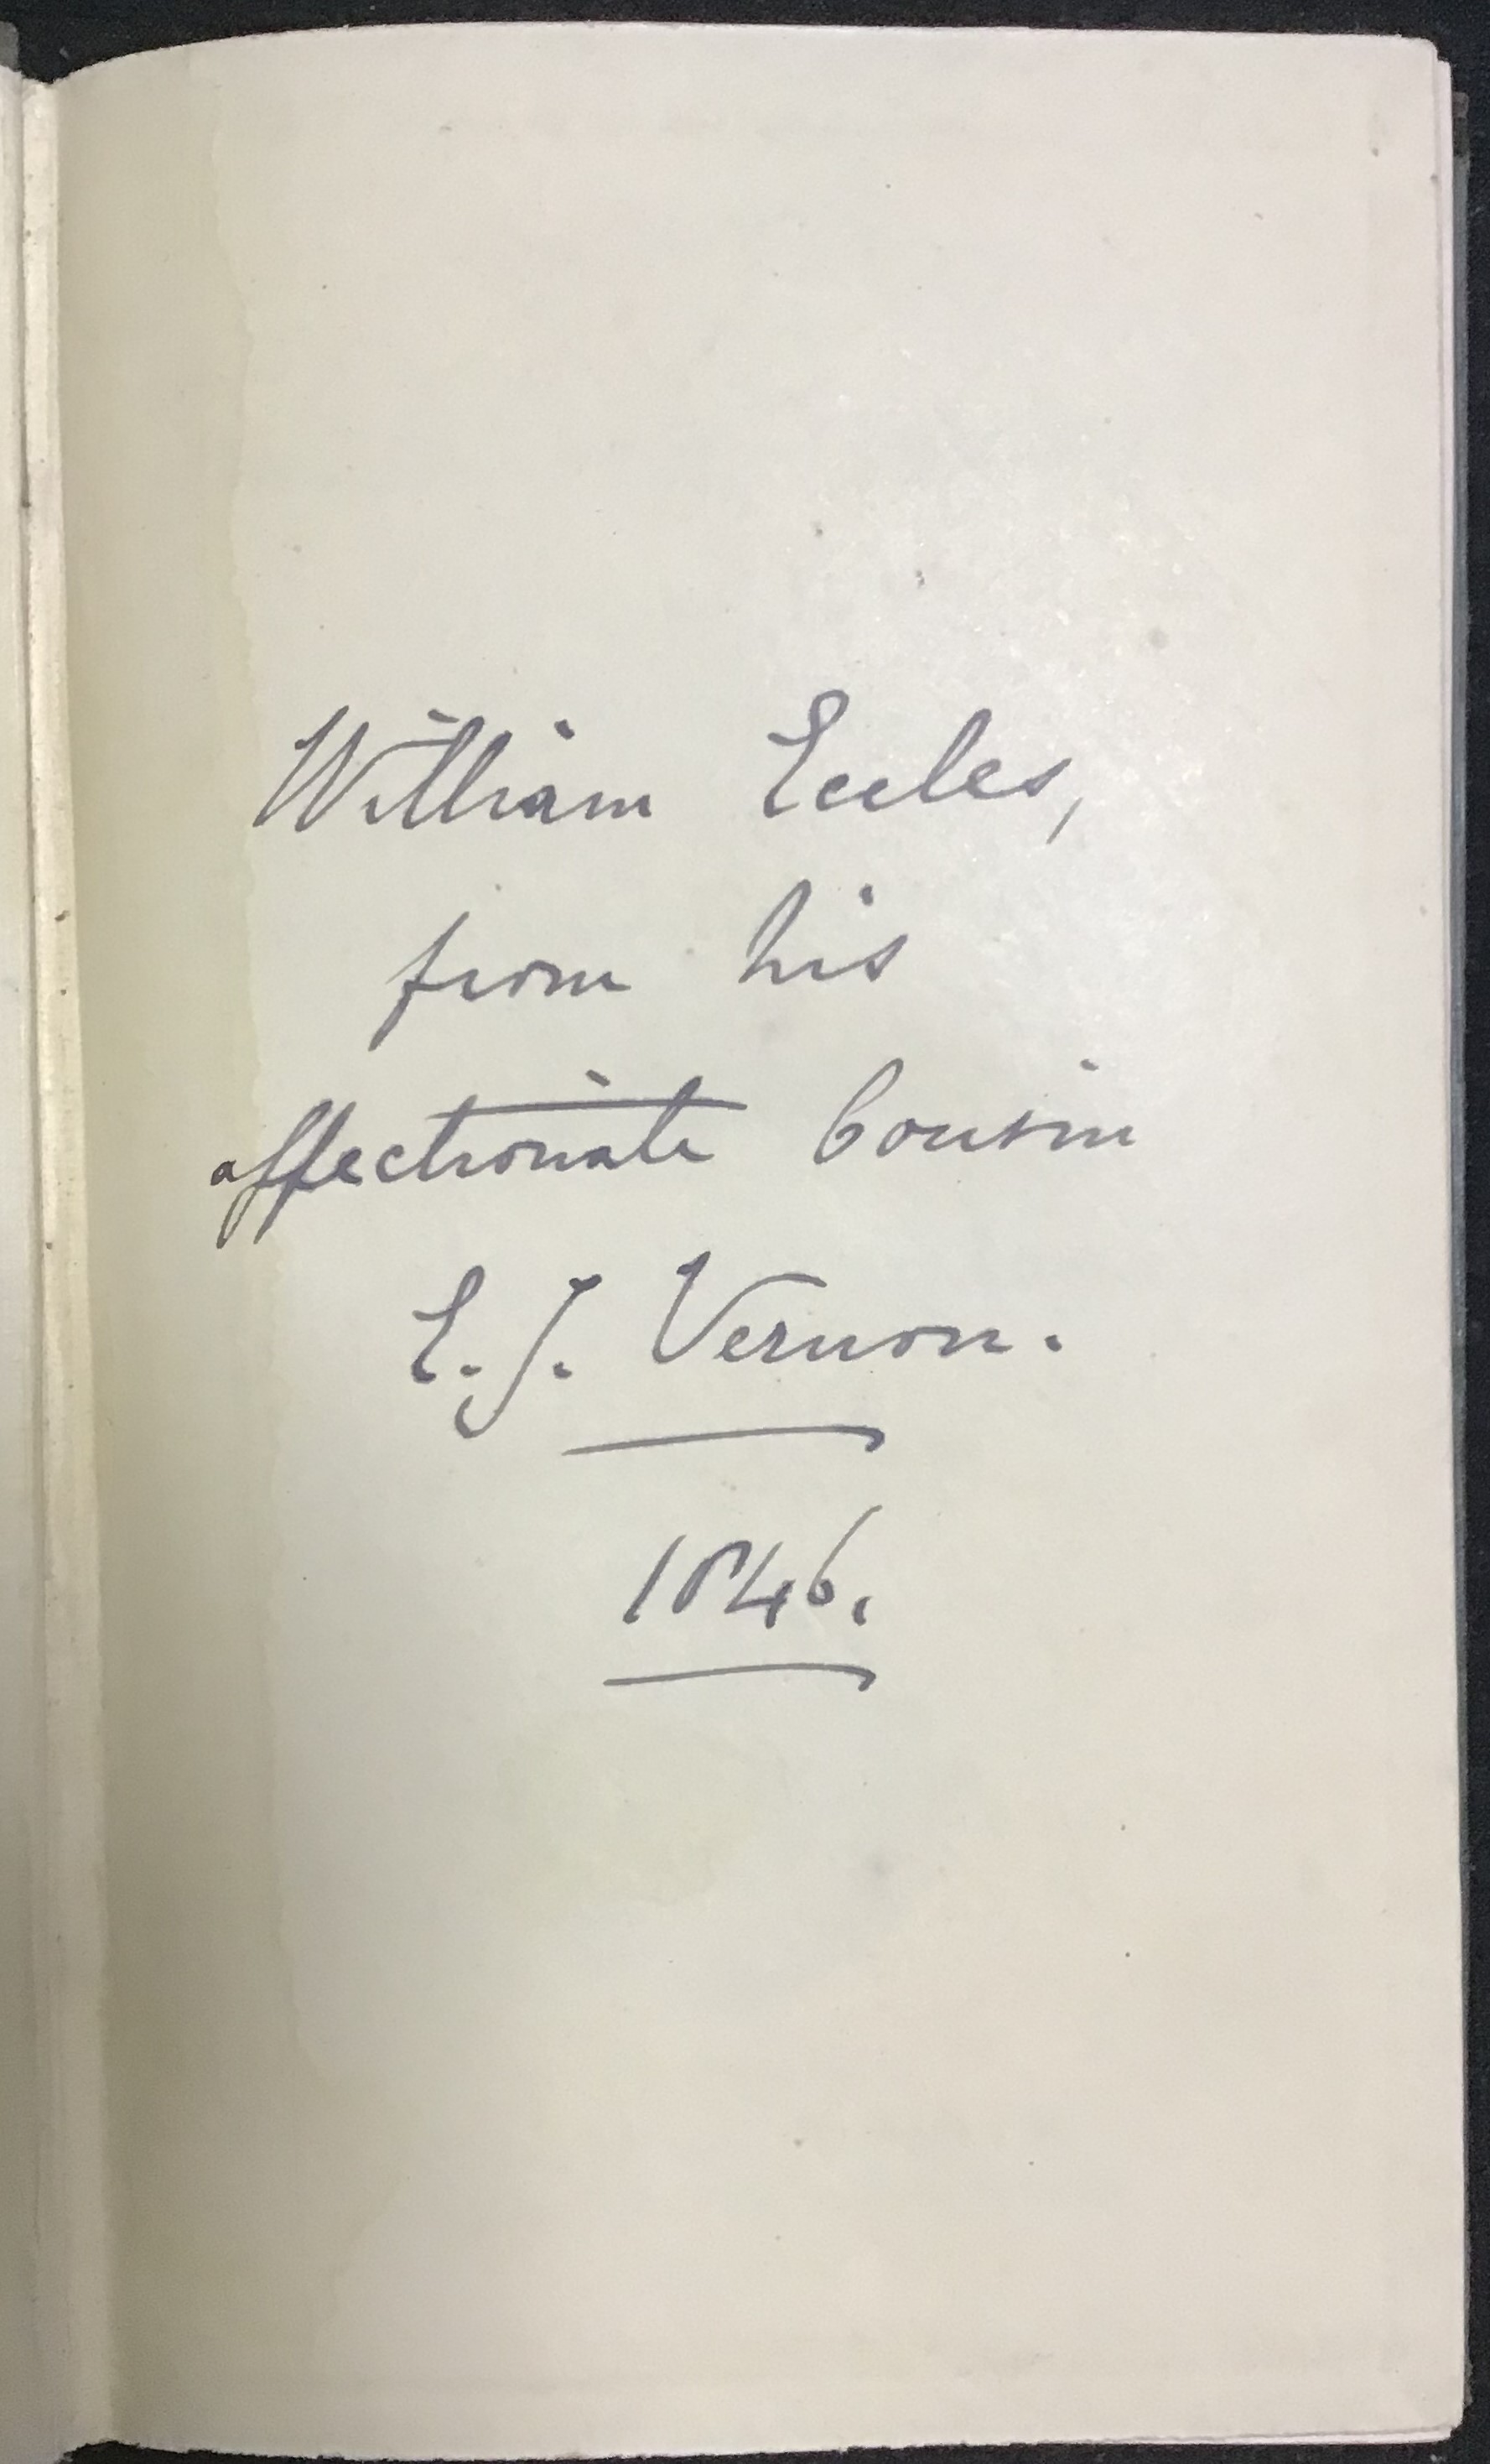 William Eccles,
from his
affectionate Cousin
E. J. Vernon.
1846.